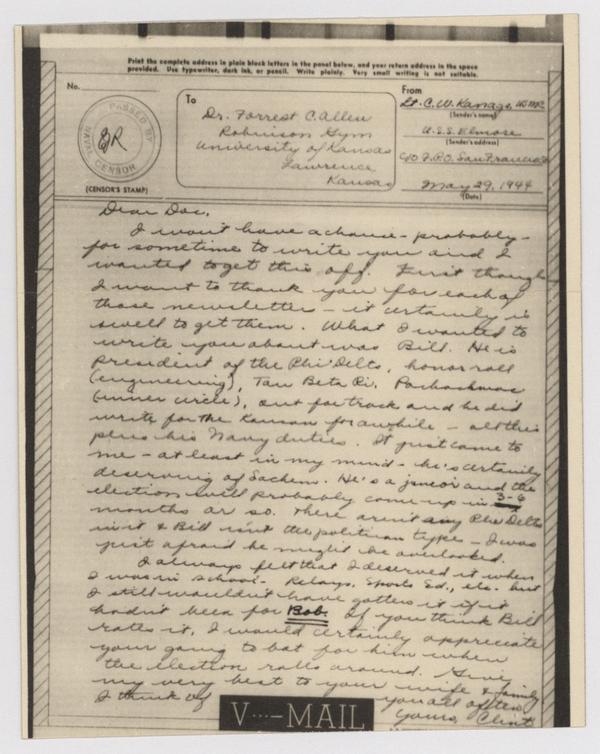 Print the complete address in plain block letters in the panel below, and your return address in the space
provided. Use typewriter, dark ink, or pencil. Write plainly. Very small writing is not suitable.
No.
PASSED BY
NAVAL CENSOR
(CENSOR'S STAMP)
To
Dr. Forrest C. Allen
Robinson Gym
University of Kansas
Lawrence
Kansas
From
Lt. C. W. Kanaga, USMC
(Sender's name)
U.S.S. Elmore
(Sender's address)
c/o F.P.O. San Francisco
May 29, 1944
(Date)
Dear Doc,
I won't have a chance - probably -
for sometime to write you and I
wanted to get this off. First though
I want to thank you for each of
those newsletter - it certainly is
swell to get them. What I wanted to
write you about was Bill. He is
president of the Phi Delts, honor roll
(engineering), Tau Beta Pi, Pachacamac
(inner circle), out for track and he did
write for the Kansan for awhile - all this
plus his Navy duties. It just came to
me - at least in my mind - he's certainly
deserving of Sachem. He's a junior and the
election will probably come up in 3-6
months or so. There aren't any Phi Delts
in it & Bill isn't the politician type - I was
just afraid he might be overlooked.
I always felt that I deserved it when
I was in school - Relays, Sports Ed., etc. but
I still wouldn't have gotten it if it
hadn't been for Bob. If you think Bill
rates it, I would certainly appreciate
your going to bat for him when
the election rolls around. Give
my very best to your wife & family
I think of you all often
Yours, Clint
V···—MAIL